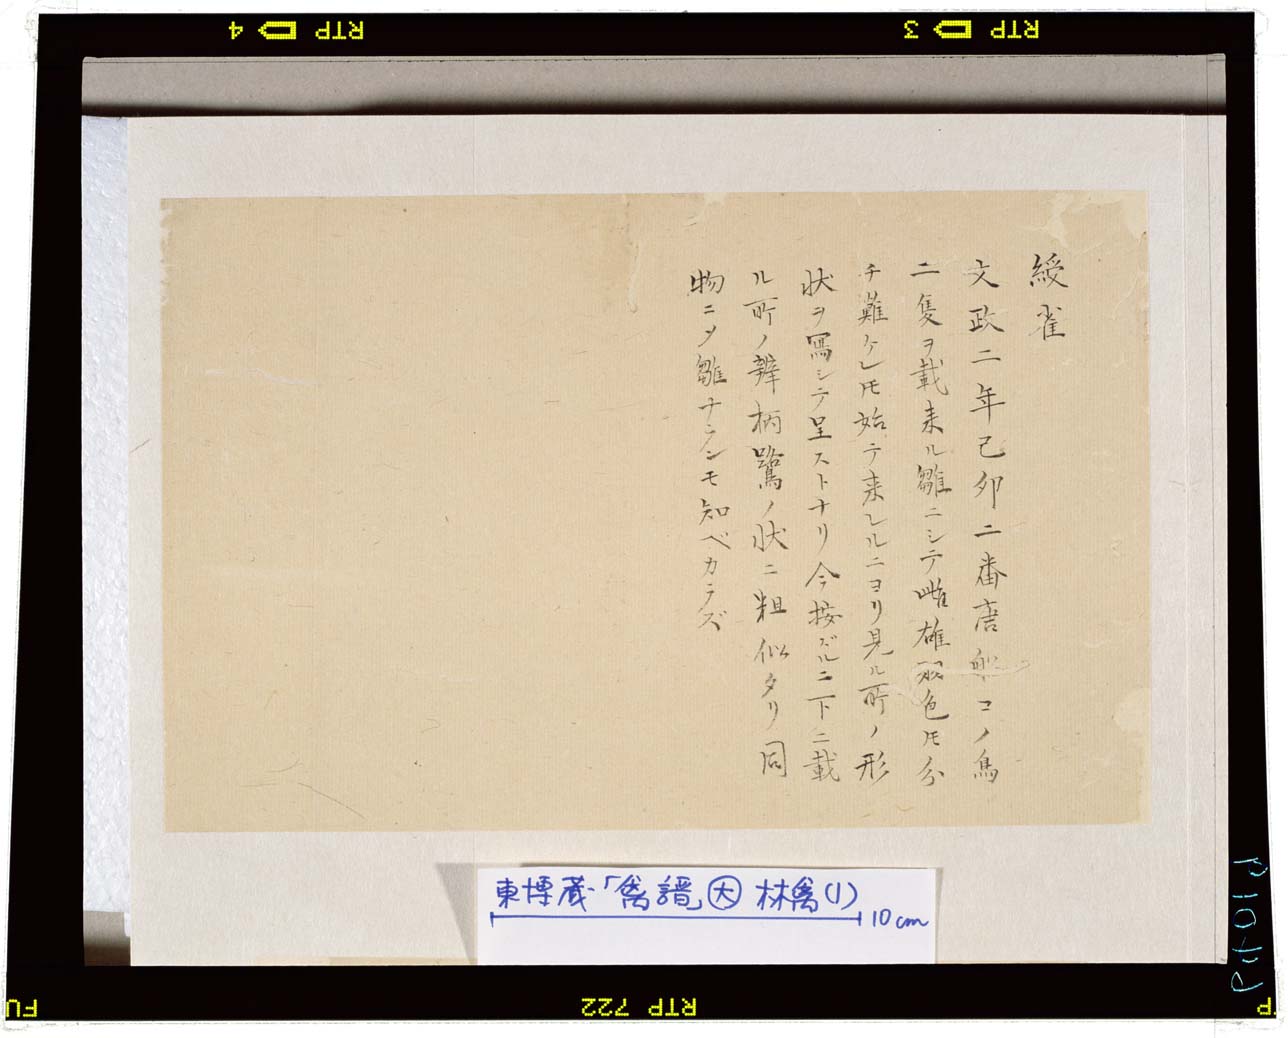 綬雀
文政二年己卯二番唐船コノ鳥
二隻ヲ載来ル雛ニシテ雌雄羽色モ分
チ難ケレ𪜈始テ来レルニヨリ見ル所ノ形
状ヲ寫シテ呈ストナリ今按ズルニ下ニ載
ル所ノ辨柄鷺ノ状ニ粗似タリ同
物ニ〆雛ナランモ知ベカラズ
東博蔵「禽譜」大 林禽(1)
10cm
RTP 4
RTP 3
RTP 722
FU